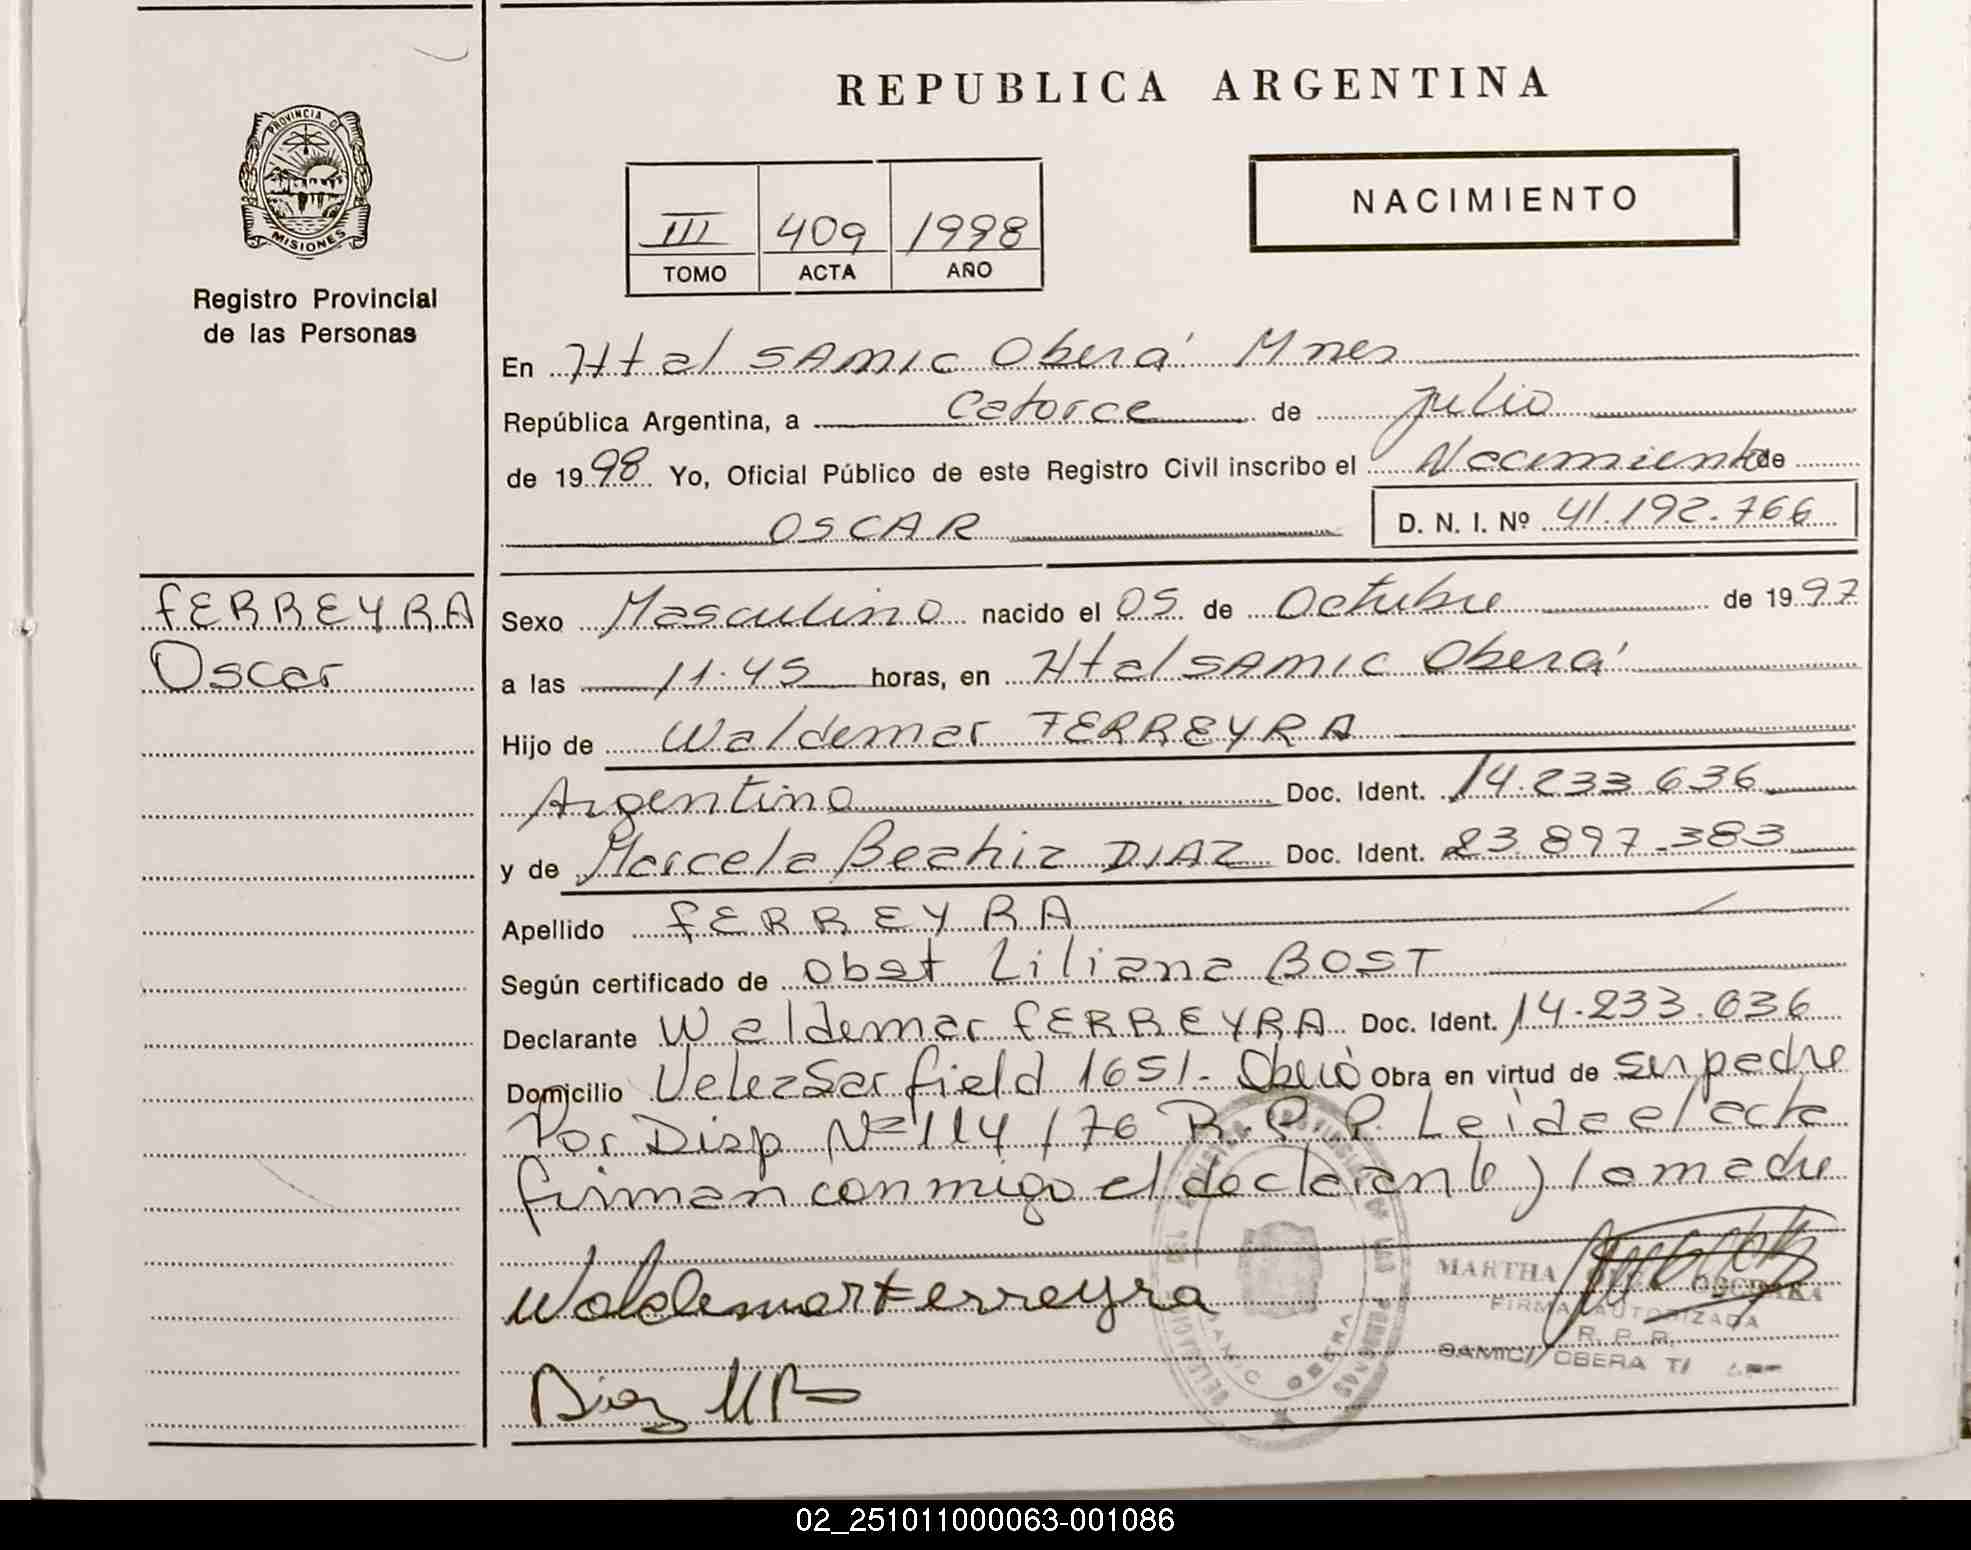 REPUBLICA ARGENTINA
PROVINCIA D
MISIONES
Registro Provincial
de las Personas
NACIMIENTO
III 409 1998
TOMO ACTA AÑO
En Htal SAMIC Oberá Mnes
República Argentina, a Catorce de Julio
de 1998 Yo, Oficial Público de este Registro Civil inscribo el Nacimiento de
OSCAR D. N. I. Nº 41.192.766
FERREYRA
Oscar
Sexo Masculino nacido el 05 de Octubre de 1997
a las 11.45 horas, en Htal SAMIC Oberá
Hijo de Waldemar FERREYRA
Argentino Doc. Ident. 14.233.636
y de Marcela Beatriz DIAZ Doc. Ident. 23.897.383
Apellido FERREYRA
Según certificado de Obst Liliana BOST
Declarante Waldemar FERREYRA Doc. Ident. 14.233.636
Domicilio Velez Sarfield 1651 - Oberá Obra en virtud de ser padre
Por Disp Nº 114/76 R.P.P. Leida el acta
firman conmigo el declarante y la madre
Waldemar Ferreyra
MARTHA
FIRMA AUTORIZADA
R. P. P.
SAMIC/ OBERA
Diaz MB
OBERA
02_251011000063-001086